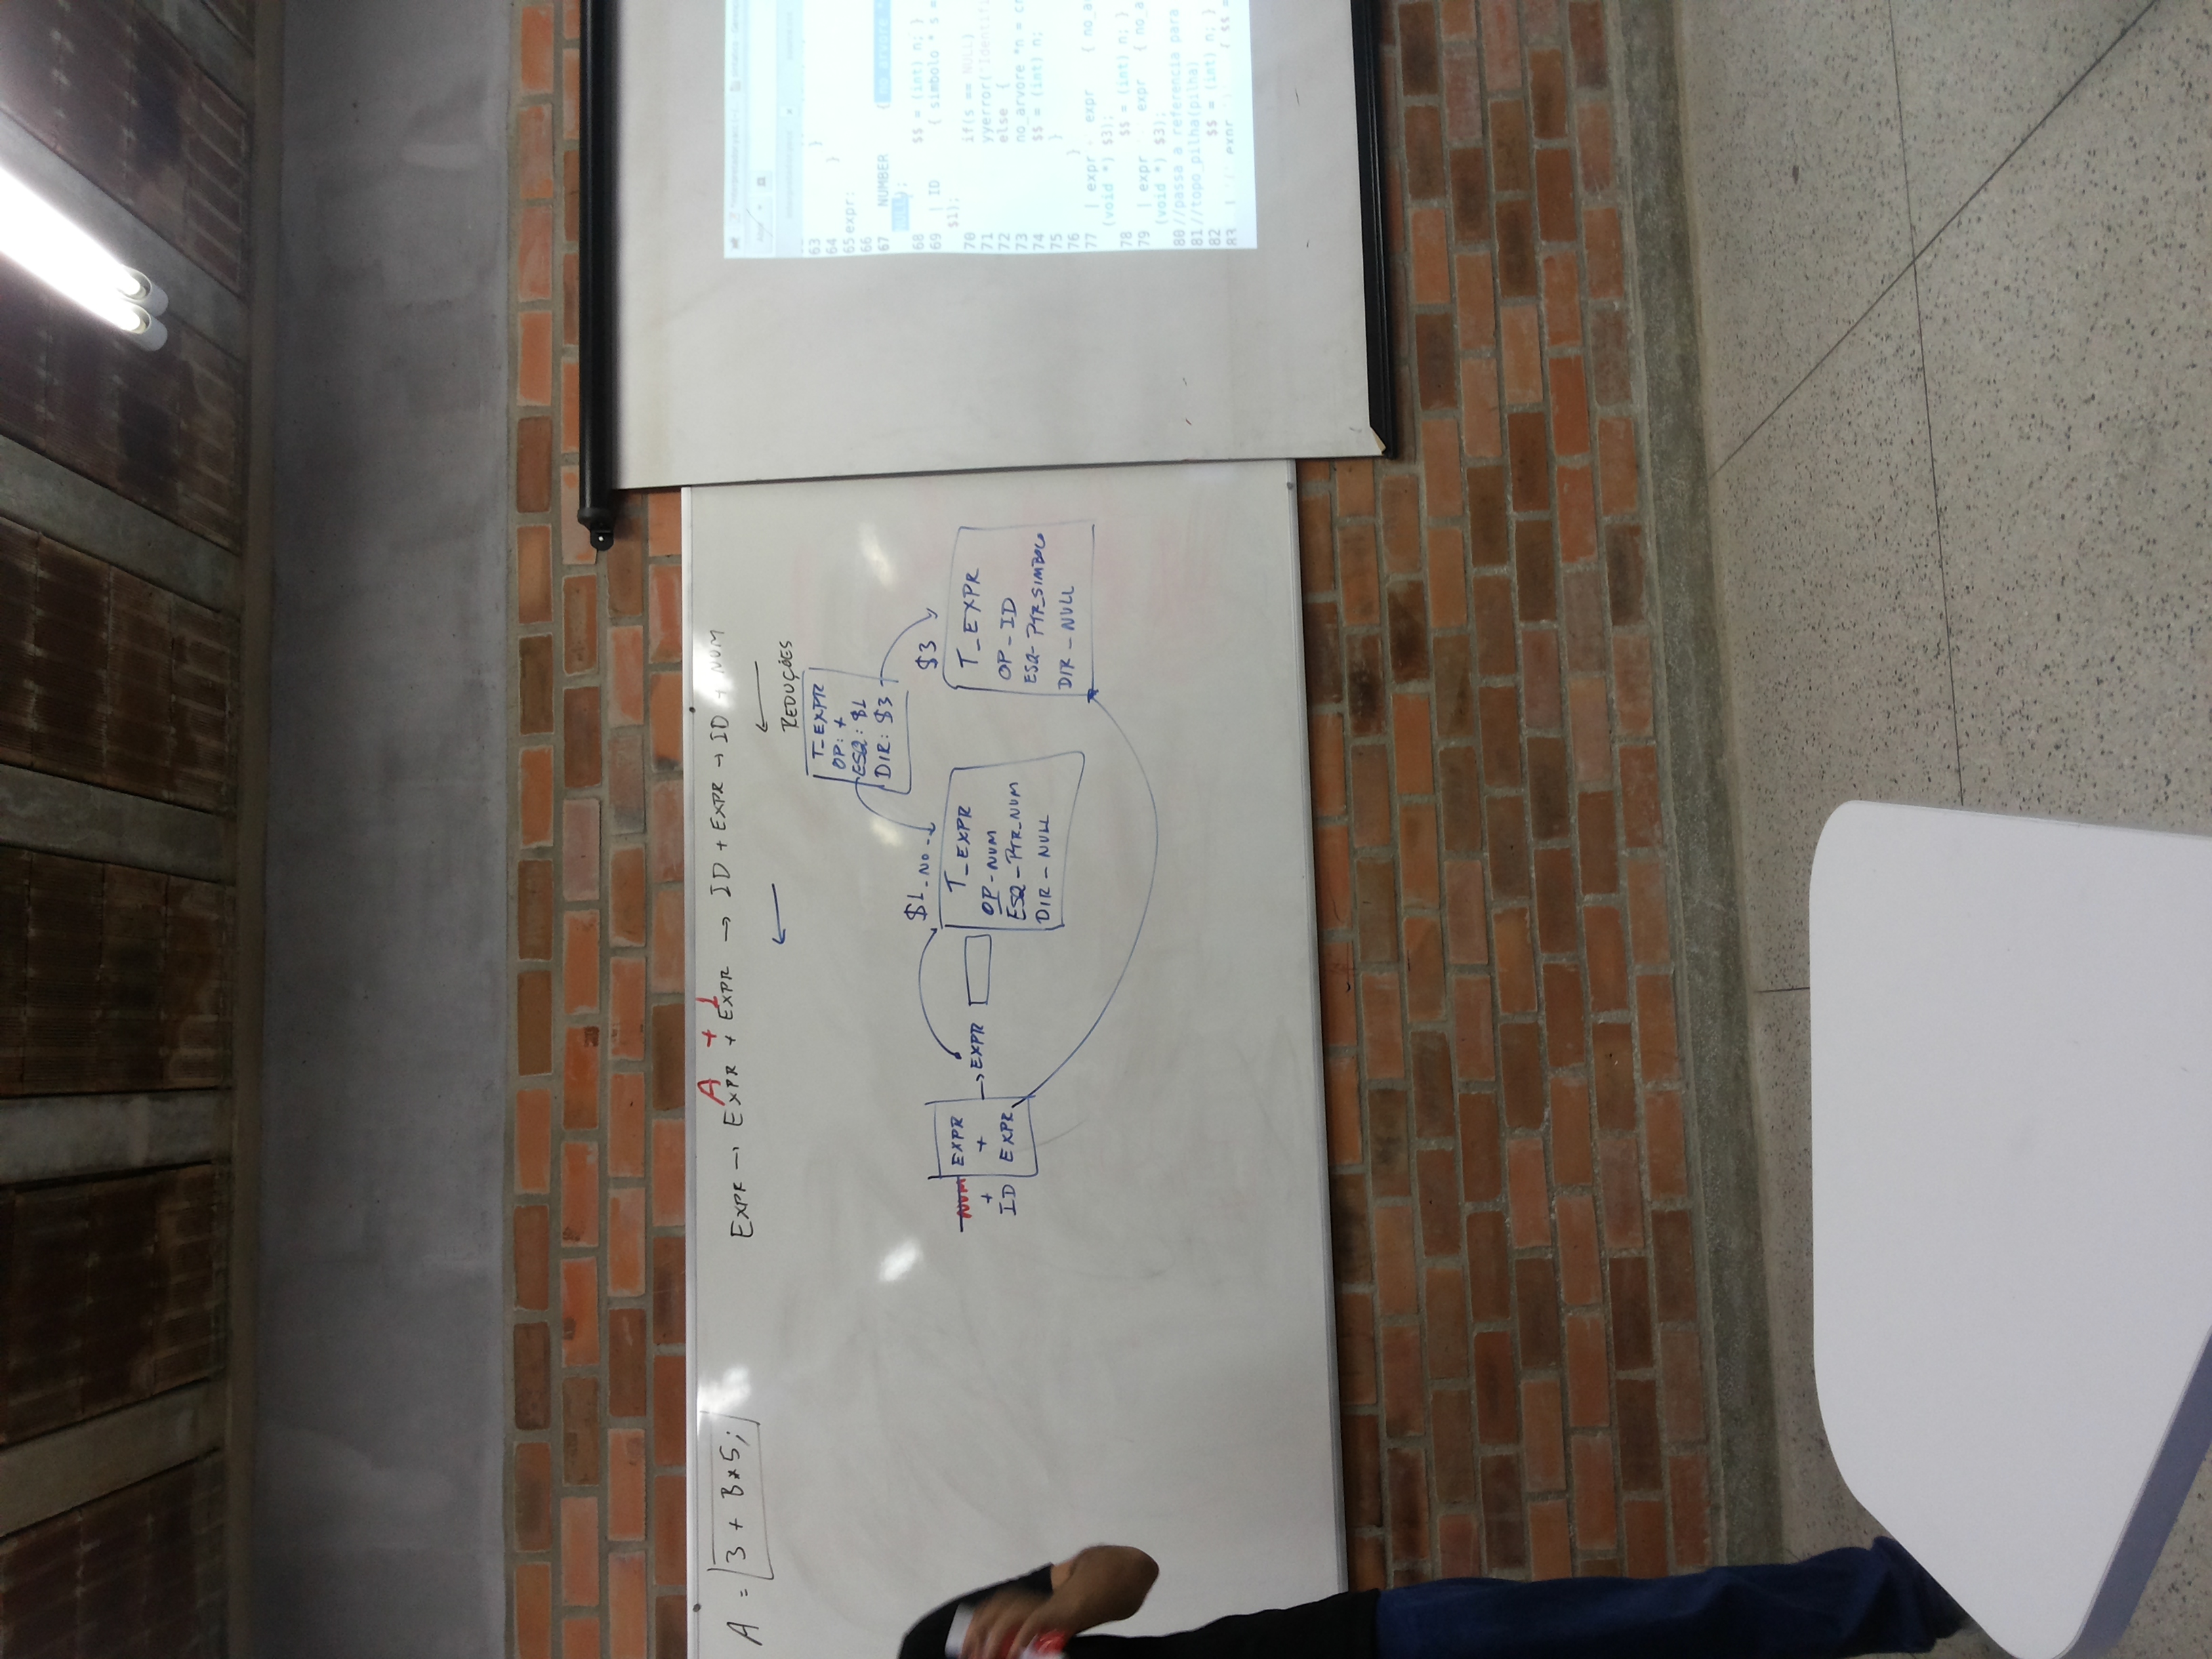 A = 3 + B*5;
A + 1
EXPR → EXPR + EXPR → ID + EXPR → ID + NUM
REDUÇÕES
T_EXPR
OP: +
ESQ: $1
DIR: $3
$1_NO
$3
NUM
+
ID
EXPR
+
EXPR
→ EXPR
T_EXPR
OP-NUM
ESQ-PTR_NUM
DIR-NULL
T_EXPR
OP-ID
ESQ-PTR_SIMBOLO
DIR-NULL
63 }
64 }
65 expr:
66
67 NUMBER { no_arvore
NULL);
68 $$ = (int) n; }
69 | ID { simbolo * s =
$1);
70 if(s == NULL)
71 yyerror("Identifi
72 else {
73 no_arvore *n = cr
74 $$ = (int) n;
75 }
76 }
77 | expr expr { no_a
(void *) $3);
78 $$ = (int) n; }
79 | expr expr { no_a
(void *) $3);
80 //passa a referencia para
81 //topo_pilha(pilha)
82 $$ = (int) n; }
83 | '(' expr ')' { $$ =